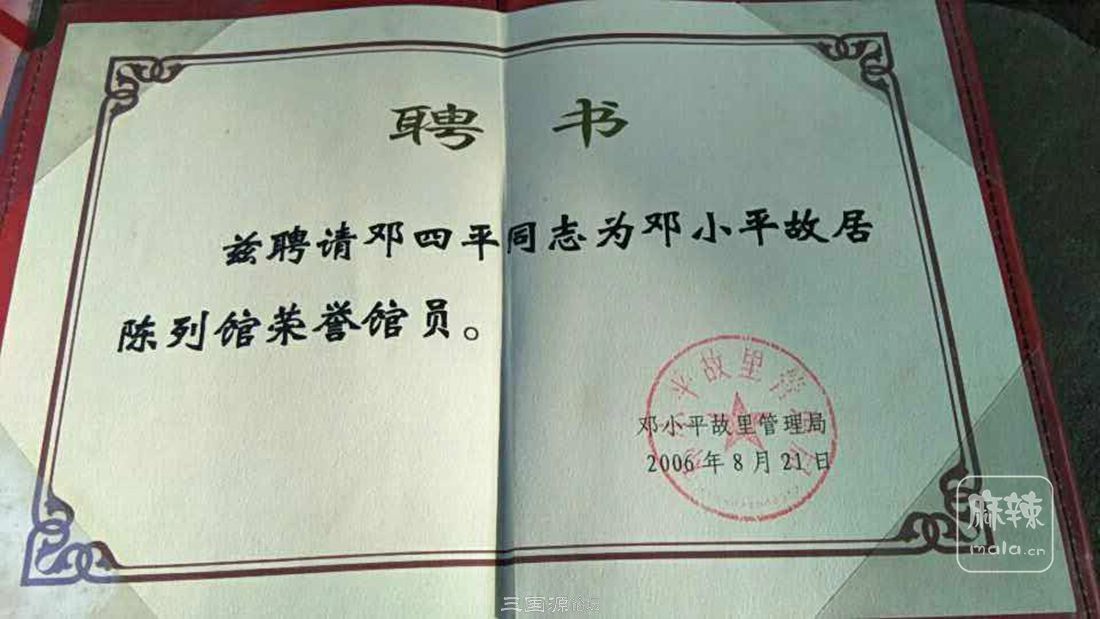 聘 书
兹聘请邓四平同志为邓小平故居
陈列馆荣誉馆员。
平故里管
邓小平故里管理局
2006年8月21日
麻辣
mala.cn
三国源论坛